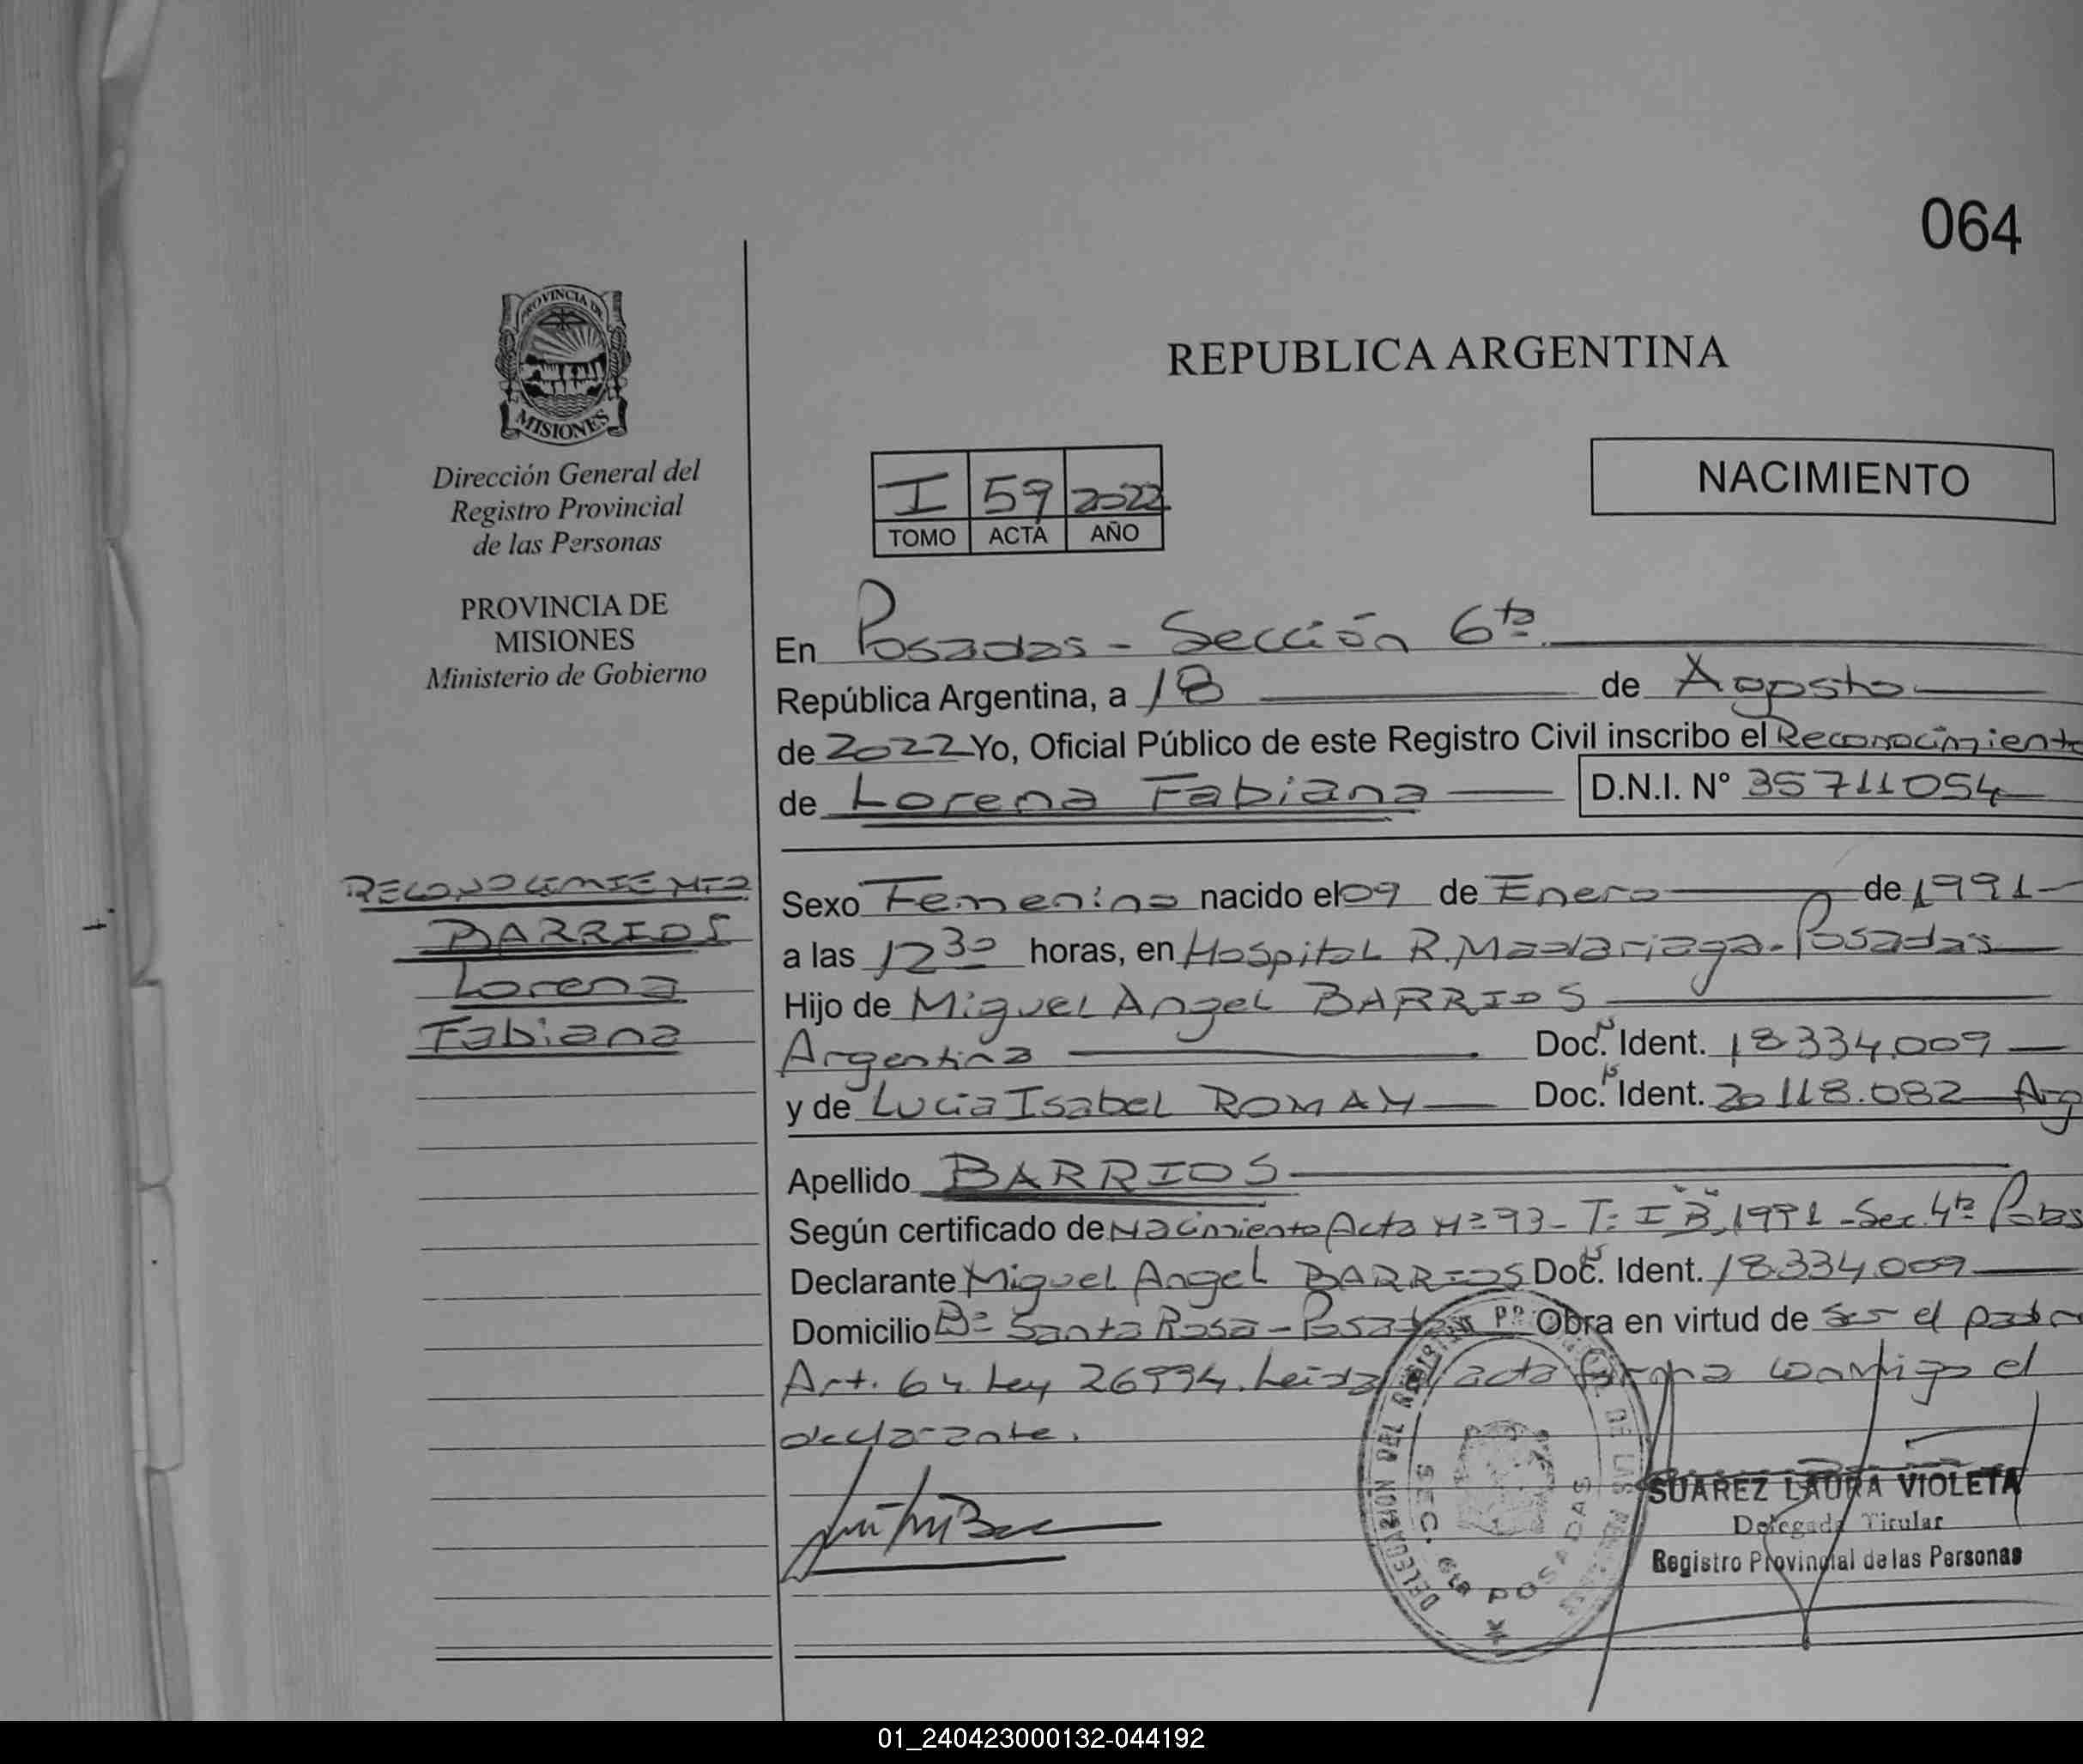 064
PROVINCIA DE
MISIONES
Dirección General del
Registro Provincial
de las Personas
PROVINCIA DE
MISIONES
Ministerio de Gobierno
RECONOCIMIENTO
BARRIOS
Lorena
Fabiana
REPUBLICA ARGENTINA
I 59 2022
TOMO ACTA AÑO
NACIMIENTO
En Posadas - Sección 6ta
República Argentina, a 18 de Agosto
de 2022 Yo, Oficial Público de este Registro Civil inscribo el Reconocimiento
de Lorena Fabiana D.N.I. Nº 35711054
Sexo Femenino nacido el 09 de Enero de 1991
a las 12 30 horas, en Hospital R. Madariaga - Posadas
Hijo de Miguel Angel BARRIOS
Argentina Doc. Ident. 18.334.009
y de Lucia Isabel ROMAN Doc. Ident. 20.118.082 Arg
Apellido BARRIOS
Según certificado de Nacimiento Acta Nº 93 - T: I "B", 1991 - Sec. 4ta Pdas
Declarante Miguel Angel BARRIOS Doc. Ident. 18.334.009
Domicilio Bº Santa Rosa - Posadas Obra en virtud de ser el padre
Art. 64. Ley 26994. Leida el acta firma conmigo el
declarante.
DELEGACION DEL REGISTRO DE LAS
SEC. 6ta POSADAS
SUAREZ LAURA VIOLETA
Delegada Titular
Registro Provincial de las Personas
01_240423000132-044192